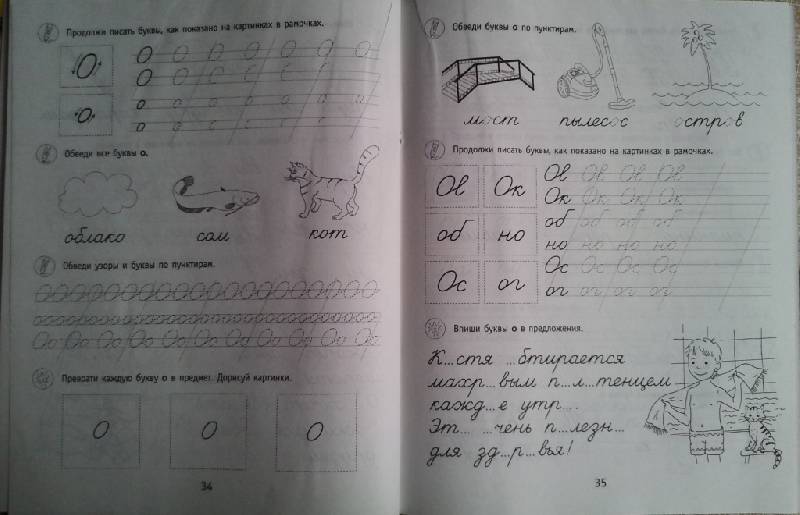 Продолжи писать буквы, как показано на картинках в рамочках.
О О О О О О О О
О О
о о о о о о о о
о
Обведи все буквы о.
облако сом кот
Обведи узоры и буквы по пунктирам.
Оо Оо Оо Оо Оо Оо Оо Оо Оо Оо Оо
Преврати каждую букву о в предмет. Дорисуй картинки.
О О О
34
Обведи буквы о по пунктирам.
мост пылесос остров
Продолжи писать буквы, как показано на картинках в рамочках.
Ов Ок Ов Ов Ов Ов
Ок Ок Ок Ок
об но об об об об
но но но но
Ос ог Ос Ос Ос Ос
ог ог ог ог
Впиши буквы о в предложения.
К...стя ...бтирается
махр...вым п...л...тенцем
кажд...е утр... .
Эт... ...чень п...лезн...
для зд...р...вья!
35